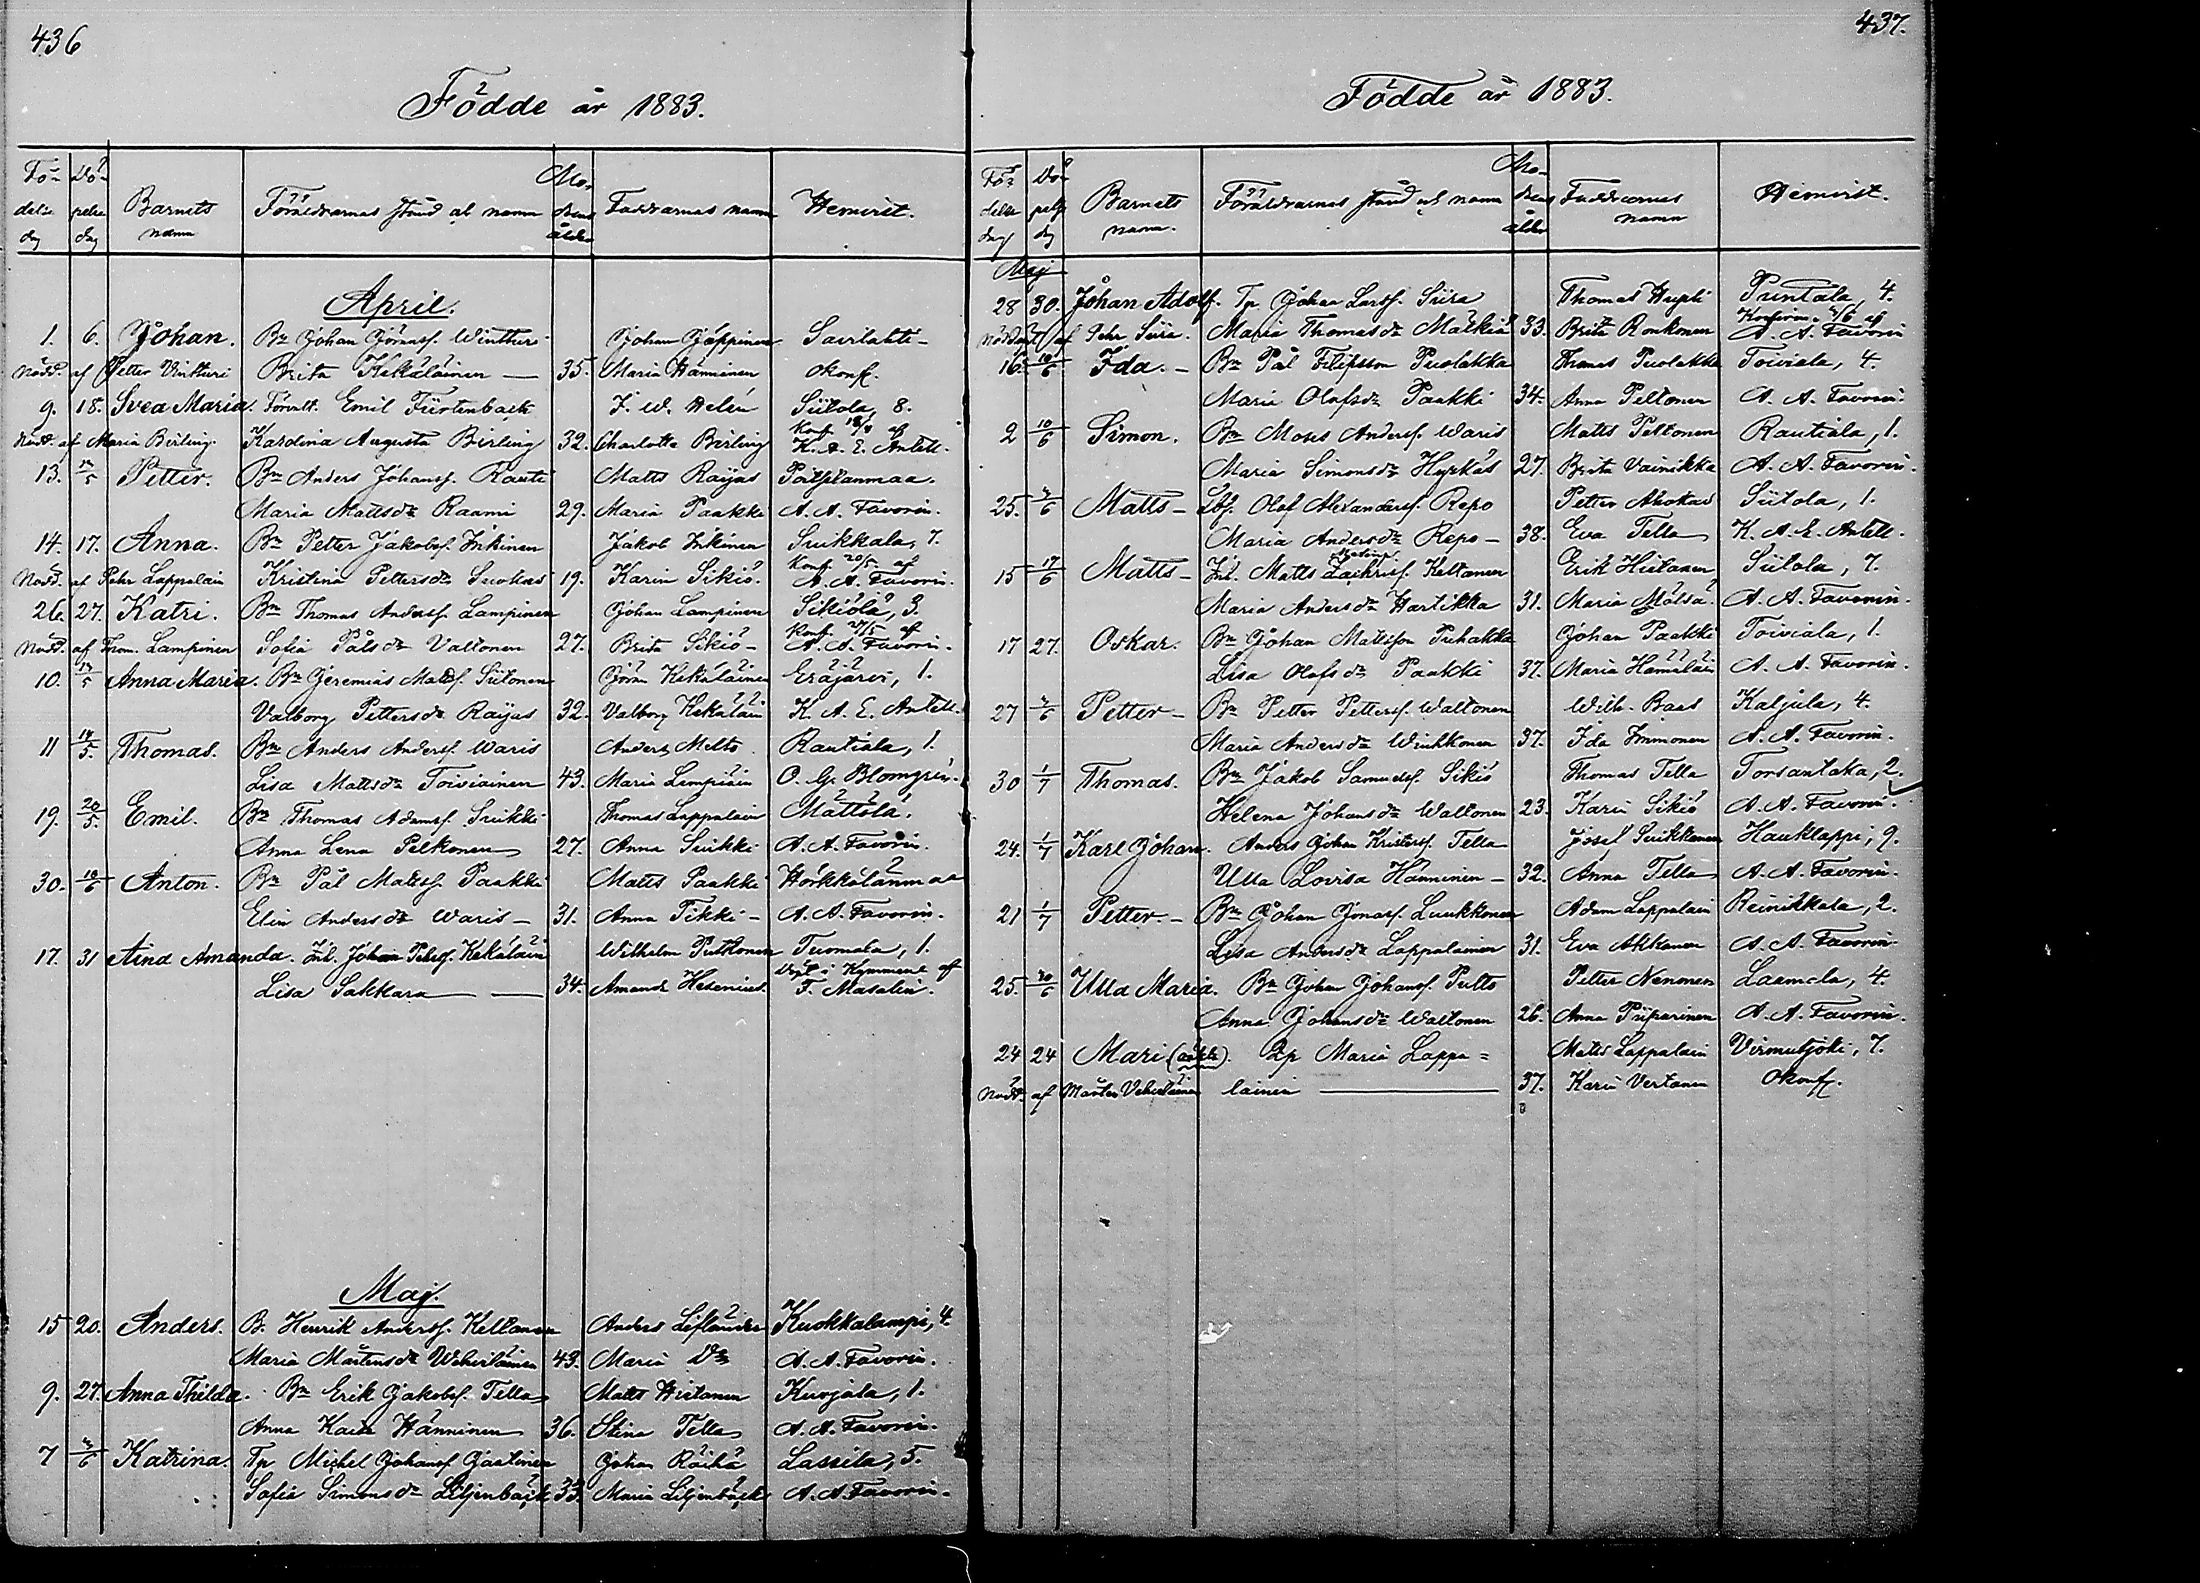 436
Födde år 1883.
Fö- Dö- Mo-
delse pelse Barnets Föräldrarnas stånd och namn drens Faddrarnas namn Hemvist.
dag dag namn ålder
April.
1. 6. Johan. Bn Johan Göransf. Winthuri Johan Jäppinen Savilahti
Nödd. af Petter Vintturi Brita Kekäläinen 35. Maria Hänninen okonf.
9. 18. Svea Maria. Förvalt. Emil Fürtenback F. W. Helén Siitola, 8.
Nödd. af Maria Birling. Karolina Augusta Birling 32. Charlotta Birling Konf. 18/4 af K. A. E. Antell.
13. 14/5 Petter. Bn Anders Johansf. Rauti Matts Raijas
Maria Mattsdr Raami 29. Maria Paakki A. A. Favorin.
14. 17. Anna. Bn Petter Jakobsf. Inkinen Jakob Inkinen Suikkala, 7.
Nödd. af Pehr Lappalain Kristina Pettersdr Suokas 19. Karin Sikiö. Konf. 20/5 af A. A. Favorin.
26. 27. Katri. Bn Thomas Andersf. Lampinen Johan Lampinen Sikiölä, 3.
Nödd. af Thom. Lampinen Sofia Pålsdr Valtonen 27. Brita Sikiö Konf. 27/5 af A. A. Favorin.
10. 14/5 Anna Maria. Bn Jeremias Mattsf. Siitonen Göran Kekäläinen Eräjärvi, 1.
Valborg Pettersdr Raijas 32. Valborg Kekäläin K. A. E. Antell.
11 14/5. Thomas. Bn Anders Andersf. Waris Anders Melto Rautiala, 1.
Lisa Mattsdr Toiviainen 43. Maria O. G. Blomgrén.
19. 20/5. Emil. Bn Thomas Adamsf. Suikki Thomas Lappalain Mattölä.
Anna Lena Pelkonen 27. Anna Suikki A. A. Favorin.
30. 10/6 Anton. Bn Pål Mattsf. Paakki Matts Paakki Hörkkölänmaa
Elin Andersdr Waris 31. Anna Tikki A. A. Favorin.
17. 31 Aina Amanda. Inl. Johan Petersf. Kekäläin Wilhelm Putkonen Tuomala, 1.
Lisa Sakkara 34. Amanda Hesenius. Döpt i Kymmene af F. Masalin.
Maj.
15 20. Anders. B. Henrik Andersf. Keltanen Anders Lifländer Kuokkalampi, 4.
Maria Mårtensdr Wehviläinen 43. Maria Dr A. A. Favorin.
9. 27. Anna Thilda. Bn Erik Jakobsf. Tella Matts Hietanen Kurjala, 1.
Anna Kaisa Hänninen 36. Stina Tella A. A. Favorin.
7 3/6 Katrina. Tp Michel Johansf. Jantinen Johan Räihä Lassila, 5.
Sofia Simonsdr Liljenbäck 33. Maria Liljenbäck A. A. Favorin.
437.
Födde år 1883.
Fö- Dö- Mo-
delse pelse Barnets Föräldrarnas stånd och namn drens Faddrarnas Hemvist.
dag dag namn. ålder namn
Maj
28 30. Johan Adolf. Tp Johan Larsf. Siira Thomas Hupli Puntala, 4.
Nöddöpt af Pehr Siira. Maria Thomasdr Mälkiä 33. Brita Ronkonen Konfirm. 3/6 af A. A. Favorin
16. 10/6 Ida. Bn Pål Filipsson Puolakka Thomas Puolakka Toiviala, 4.
Maria Olofsdr Paakki 34. Anna Peltonen A. A. Favorin.
2 10/6 Simon. Bn Moses Andersf. Waris Matts Peltonen Rautiala, 1.
Maria Simonsdr Hyrkäs 27. Brita Vainikka A. A. Favorin.
25. 3/6 Matts Lbf. Olof Alexandersf. Repo Petter Ahokas Siitola, 1.
Maria Andersdr Repo 38. Eva Tella K. A. E. Antell.
15 17/6 Matts Inl. Matts Zachrisf. Keltanen Erik Hietanen Siitola, 7.
Maria Andersdr Hartikka 31. Maria Mälsä. A. A. Favorin.
17 27. Oskar. Bn Johan Mattsson Puhakka Johan Paakki Toiviala, 1.
Lisa Olofsdr Paakki 37. Maria Hämäläin A. A. Favorin.
27 3/6 Petter Bn Petter Pettersf. Waltonen Wilh. Baas Kaljula, 4.
Maria Andersdr Winhkonen 37. Ida Immonen A. A. Favorin.
30 1/7 Thomas. Bn Jakob Samuelsf. Sikiö Thomas Tella Torsantaka, 2.
Helena Johansdr Waltonen 23. Karin Sikiö A. A. Favorin.
24. 1/7 Karl Johan. Anders Johan Kristersf. Tella Josef Suikkanen Hauklappi, 9.
Ulla Lovisa Hänninen 32. Anna Tella A. A. Favorin.
21 1/7 Petter Bn Johan Jonasf. Luukkonen Adam Lappalain Reinikkala, 2.
Lisa Andersdr Lappalainen 31. Eva Ahkanen A. A. Favorin.
25. 30/6 Ulla Maria. Bn Johan Johansf. Pulto Petter Nenonen Laamala, 4.
Anna Johansdr Waltonen 26. Anna Piiparinen A. A. Favorin.
24 24 Mari (oäkta). Qp Maria Lappa= Matts Lappalain Virmutjoki, 7.
Nödd. af Mårten Vehviläinen lainen 37. Karin Vertanen Okonf.